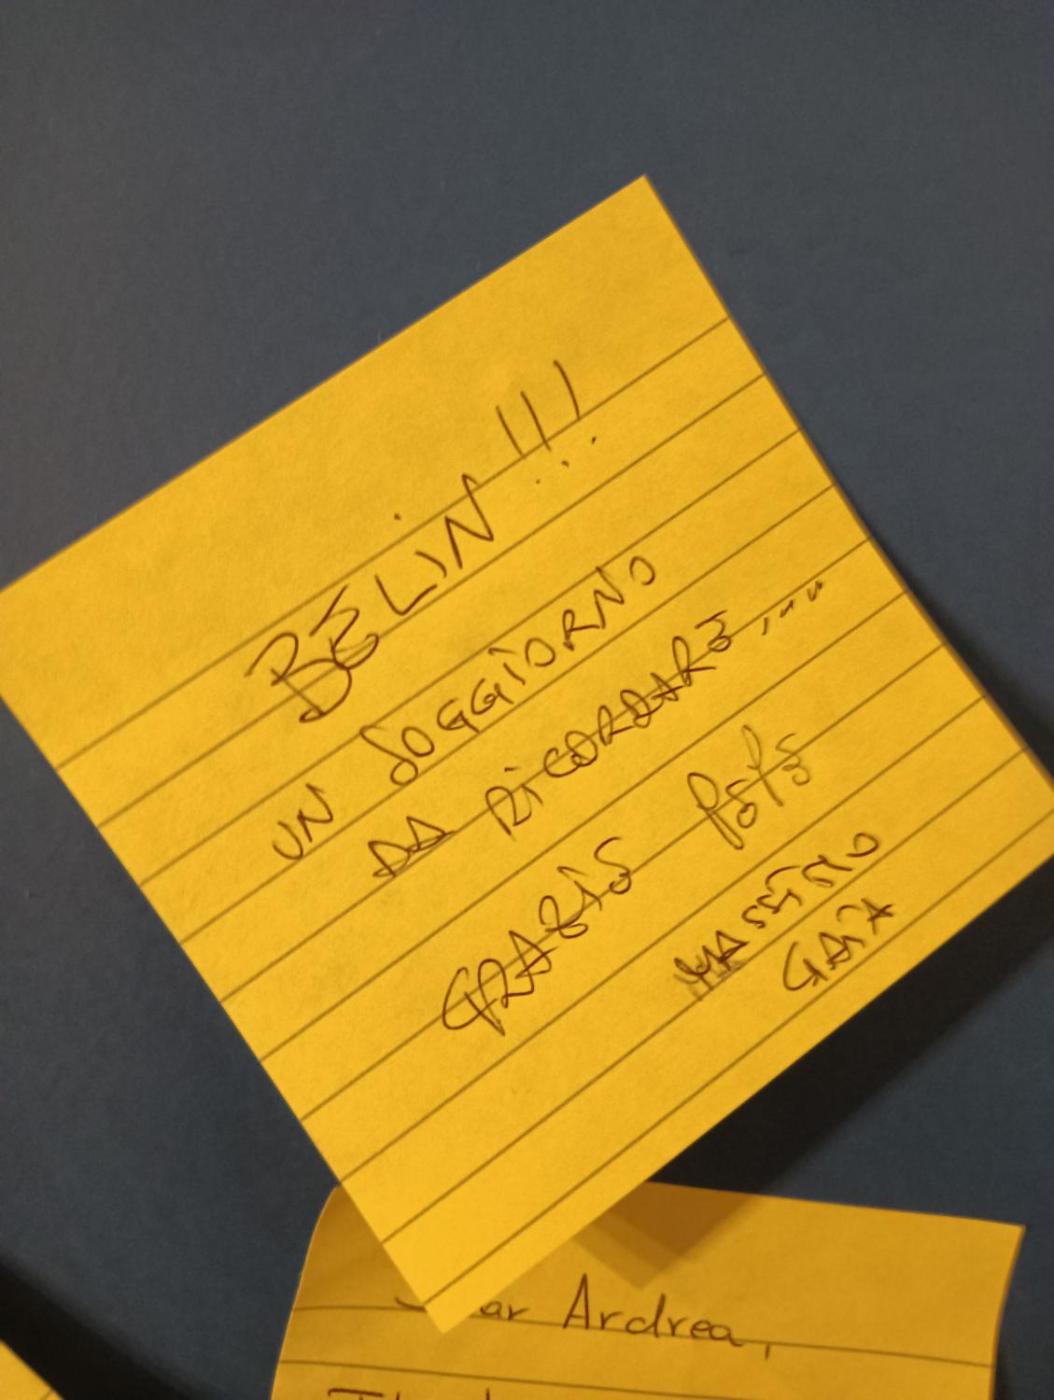 BELIN!!!
UN SOGGIORNO
DA RICORDARE....
GRAZIE PEPE
MASSIMO
GAIA
ar Andrea,